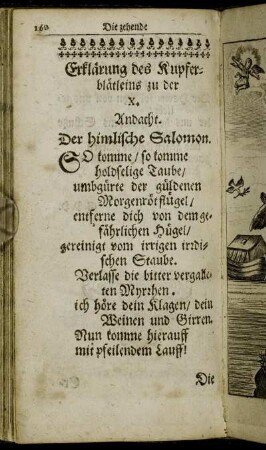 160 Die zehende
Erklärung des Kupfer-
blätleins zu der
X.
Andacht.
Der himlische Salomon.
SO komme / so komme
holdselige Taube /
umbgürte der güldenen
Morgenrötflügel /
entferne dich von dem ge-
fährlichen Hügel /
gereinigt vom irrigen irrdi-
schen Staube.
Verlasse die bitter vergäll-
ten Myrrhen.
ich höre dein Klagen / dein
Weinen und Girren.
Nun komme hierauff
mit pfeilendem Lauff!
Die